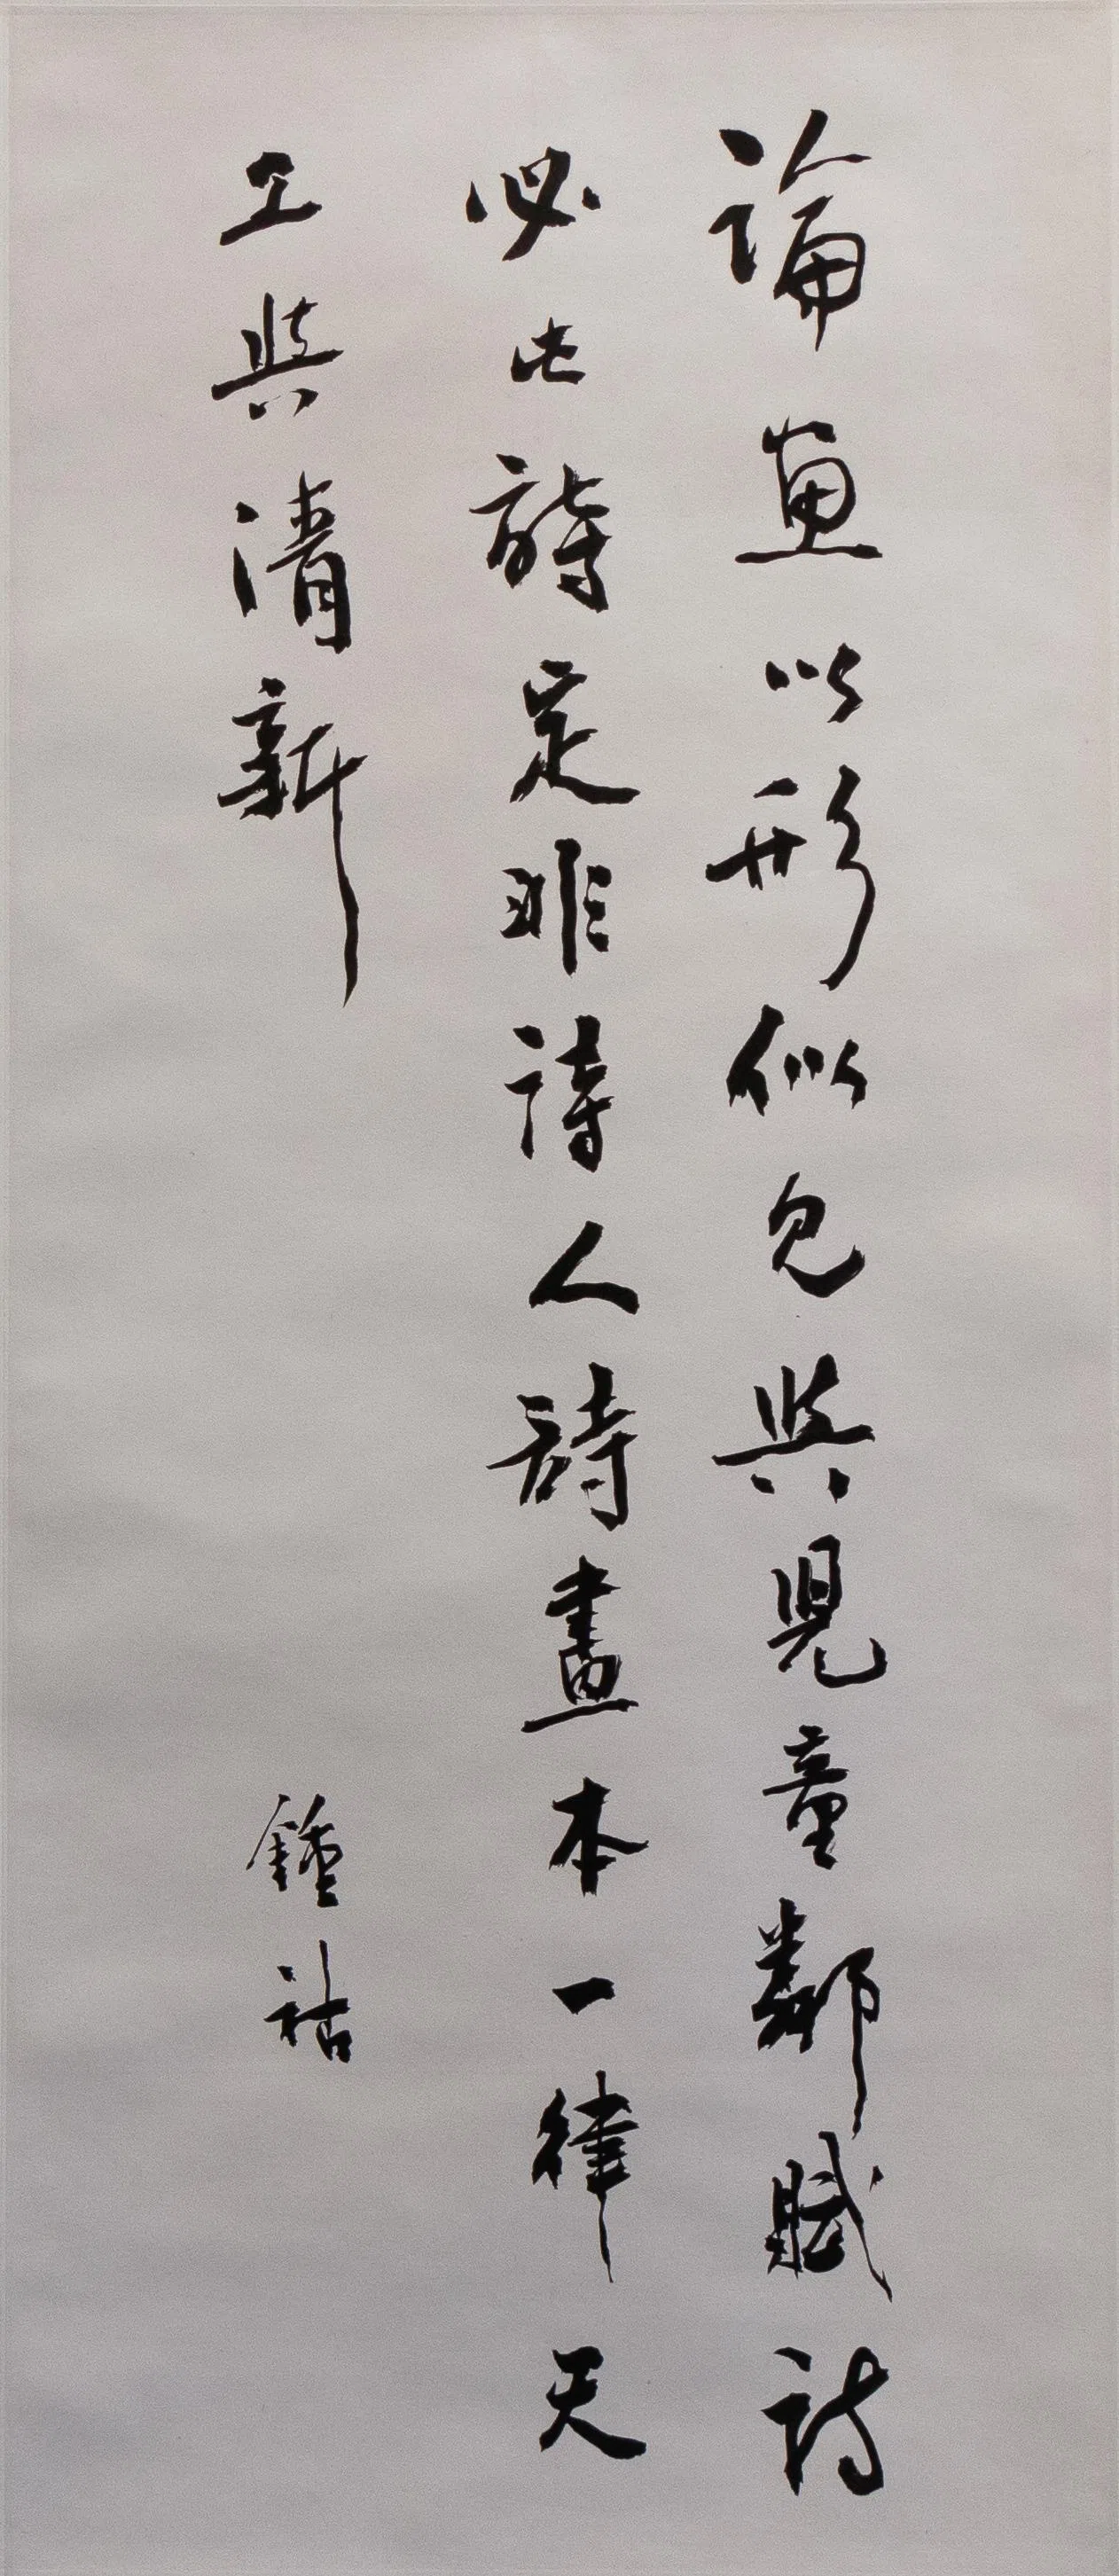 論畫以形似見與兒童鄰賦詩
必此詩定非詩人詩畫本一律天
工與清新
鍾祜